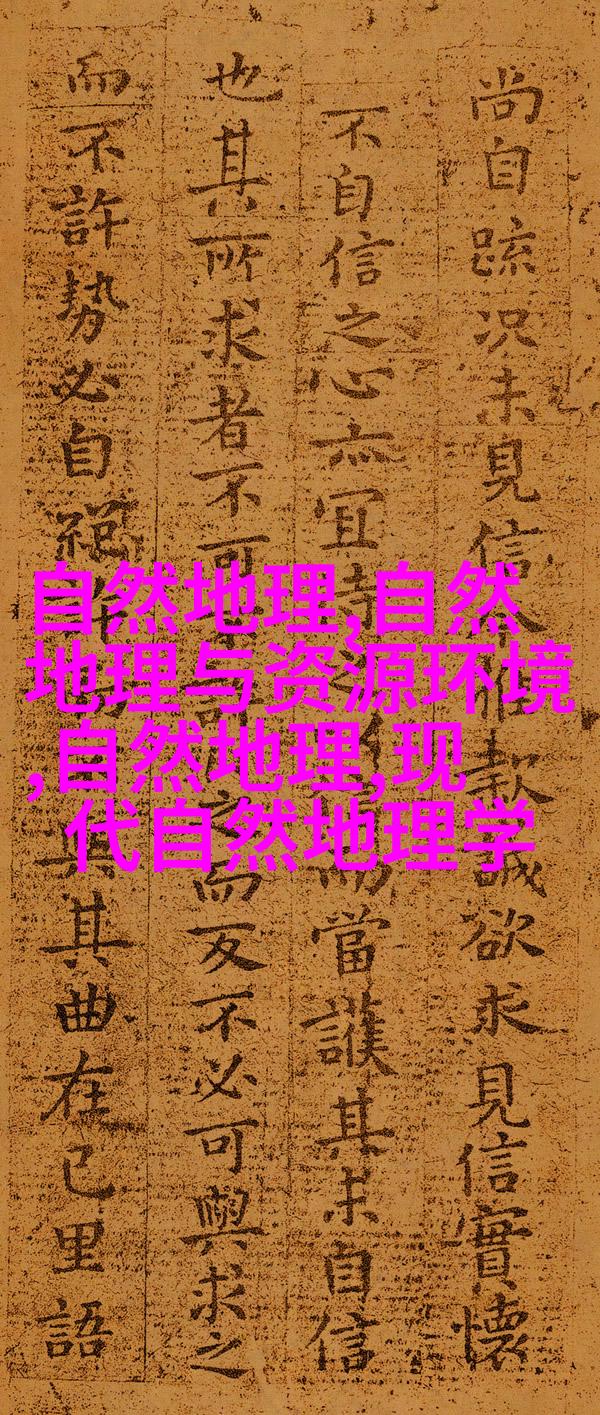 尚自疏况未見信款誠欲求見信實懷
不自信之心亦宜當護其未自信
也其所求者不可而反不必可與求之
而不許勢必自絕其曲在己里語
自然地理,自然
地理与资源环境
,自然地理,现
代自然地理学